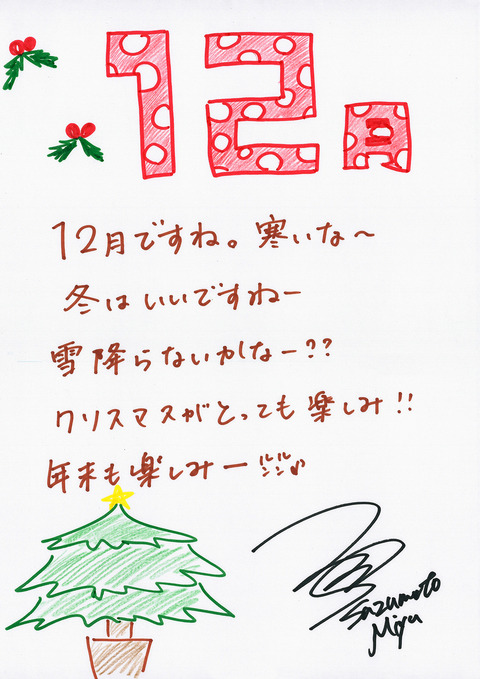 12月
12月ですね。寒いな〜
冬はいいですねー
雪降らないかなー??
クリスマスがとっても楽しみ!!
年末も楽しみー ルンルン♪
Miyu